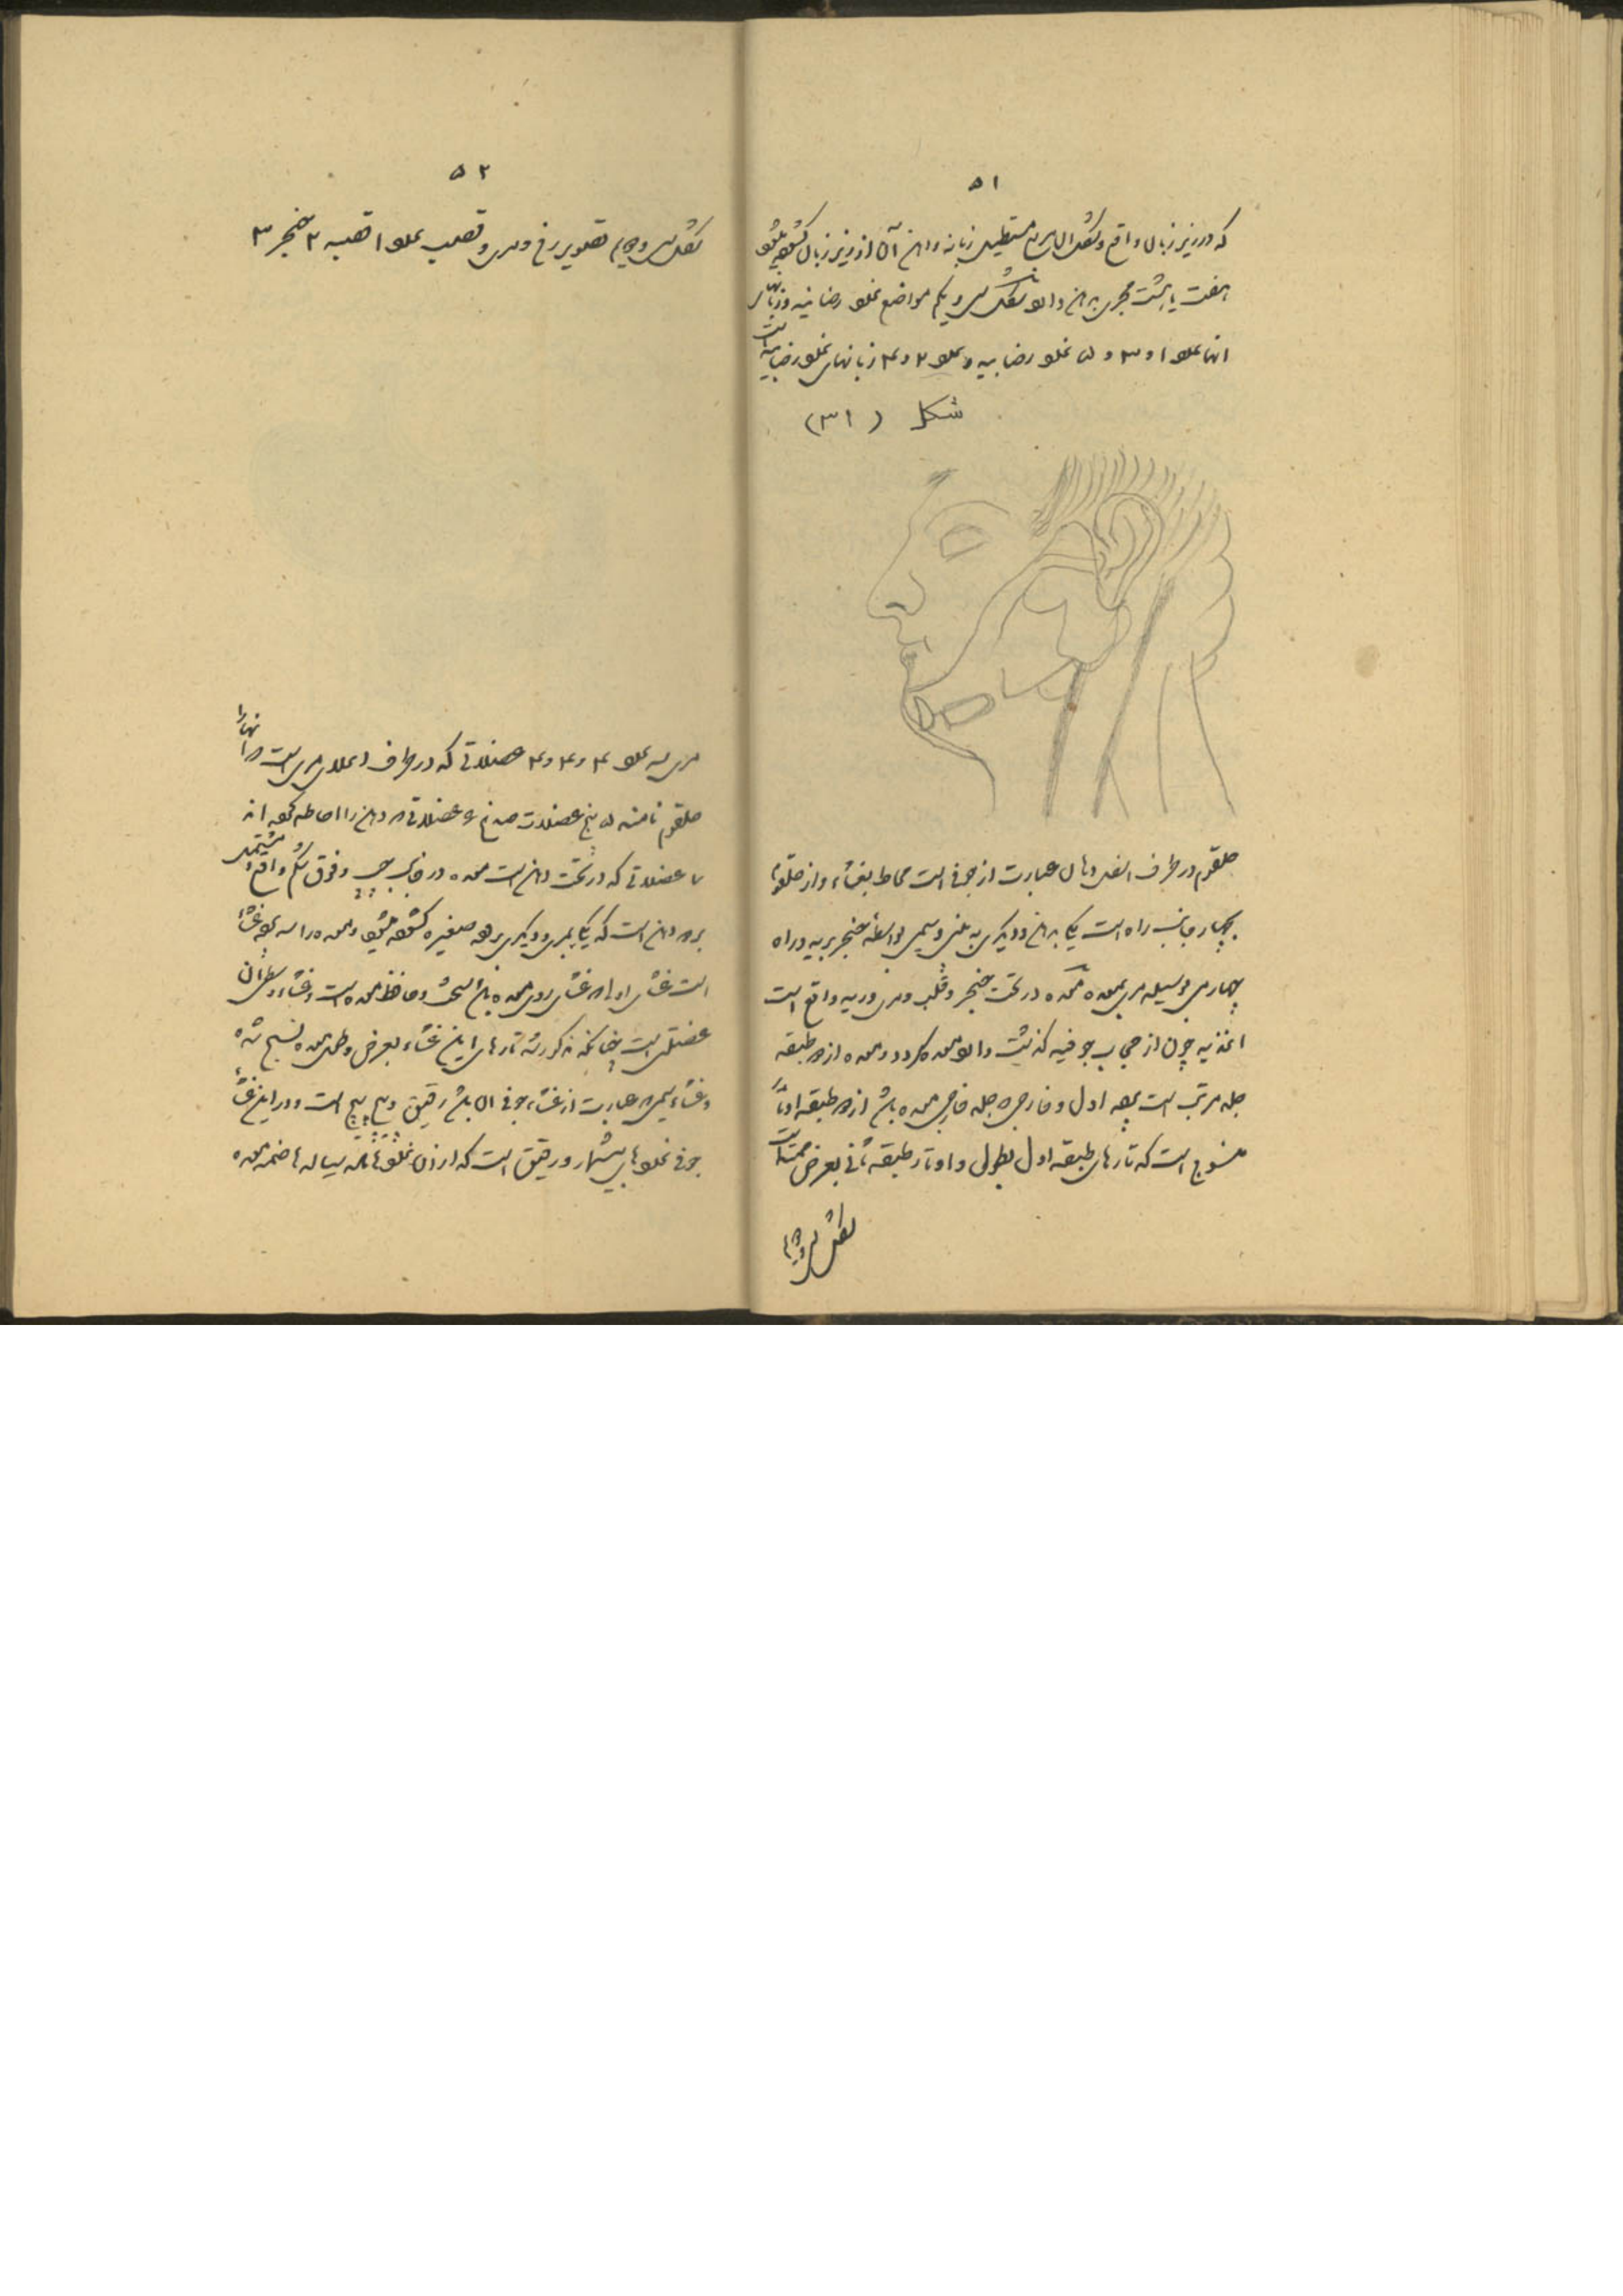 ۵۱
که در زیر زبان واقع و شکل آن مستطیل زبانه دهن آن از زیر زبان گشوده میشود
هفت یا هشت مجری به دهن دارد شکل سی و یکم مواضع غدد رضابیه و زبانهای
انها عدد ۱ و ۳ و ۵ غدد رضابیه و عدد ۲ و ۴ زبانهای غدد رضابیه است
شکل (۳۱)
حلقوم در طرف اسفل دهان عبارت از جوفی است محاط بغشاء و از حلقوم
بچهار جانب راه است یکی به دهن و دیگری به بینی و سیمی بواسطه حنجر بریه و راه
چهارمی بوسیله مری بمعده معده در تحت حنجر و قلب و مری و ریه واقع است
اغذیه چون از حجاب جوفیه گذشت داخل معده گردد و معده از سه طبقه
جلد مرتب است جلد اول و خارجی جلد خارجی معده باشد از دو طبقه اوتار
منسوج است که تارهای طبقه اول بطولی و اوتار طبقه ثانی بعرض ممتد است
شکل سی و دویم
۵۲
شکل سی و دویم تصویر رخ و مری و قصب عدد ۱ قصبه ۲ حنجر ۳
مری سه عدد ۴ و ۴ و ۴ عضلاتی که در طرف اعلای مری است و انها را
حلقوم نامند ۵ پنج عضلات صدغ ۶ عضلاتی که دهن را احاطه کرده اند
۷ عضلاتی که در تحت دهن است معده در جانب چپ و فوق شکم واقع و مشتمل
بدو دهن است که یکی بمری و دیگری بروده صغیره گشوده میشود و معده را سه غشاء
است غشای اول غشای روی معده باشد و حافظ معده است و غشاء وسطی ان
عضلی است چنانکه مذکور شد تارهای این غشاء بعرض و طول معده نسج شده
و غشاء سیمی عبارت از غشاء جوفی ان باشد رقیق و پیچ پیچ است و در این غشاء
جوفی غددهای بیشمار و رقیق است که از آن غددها ماده سیاله هاضمه معده